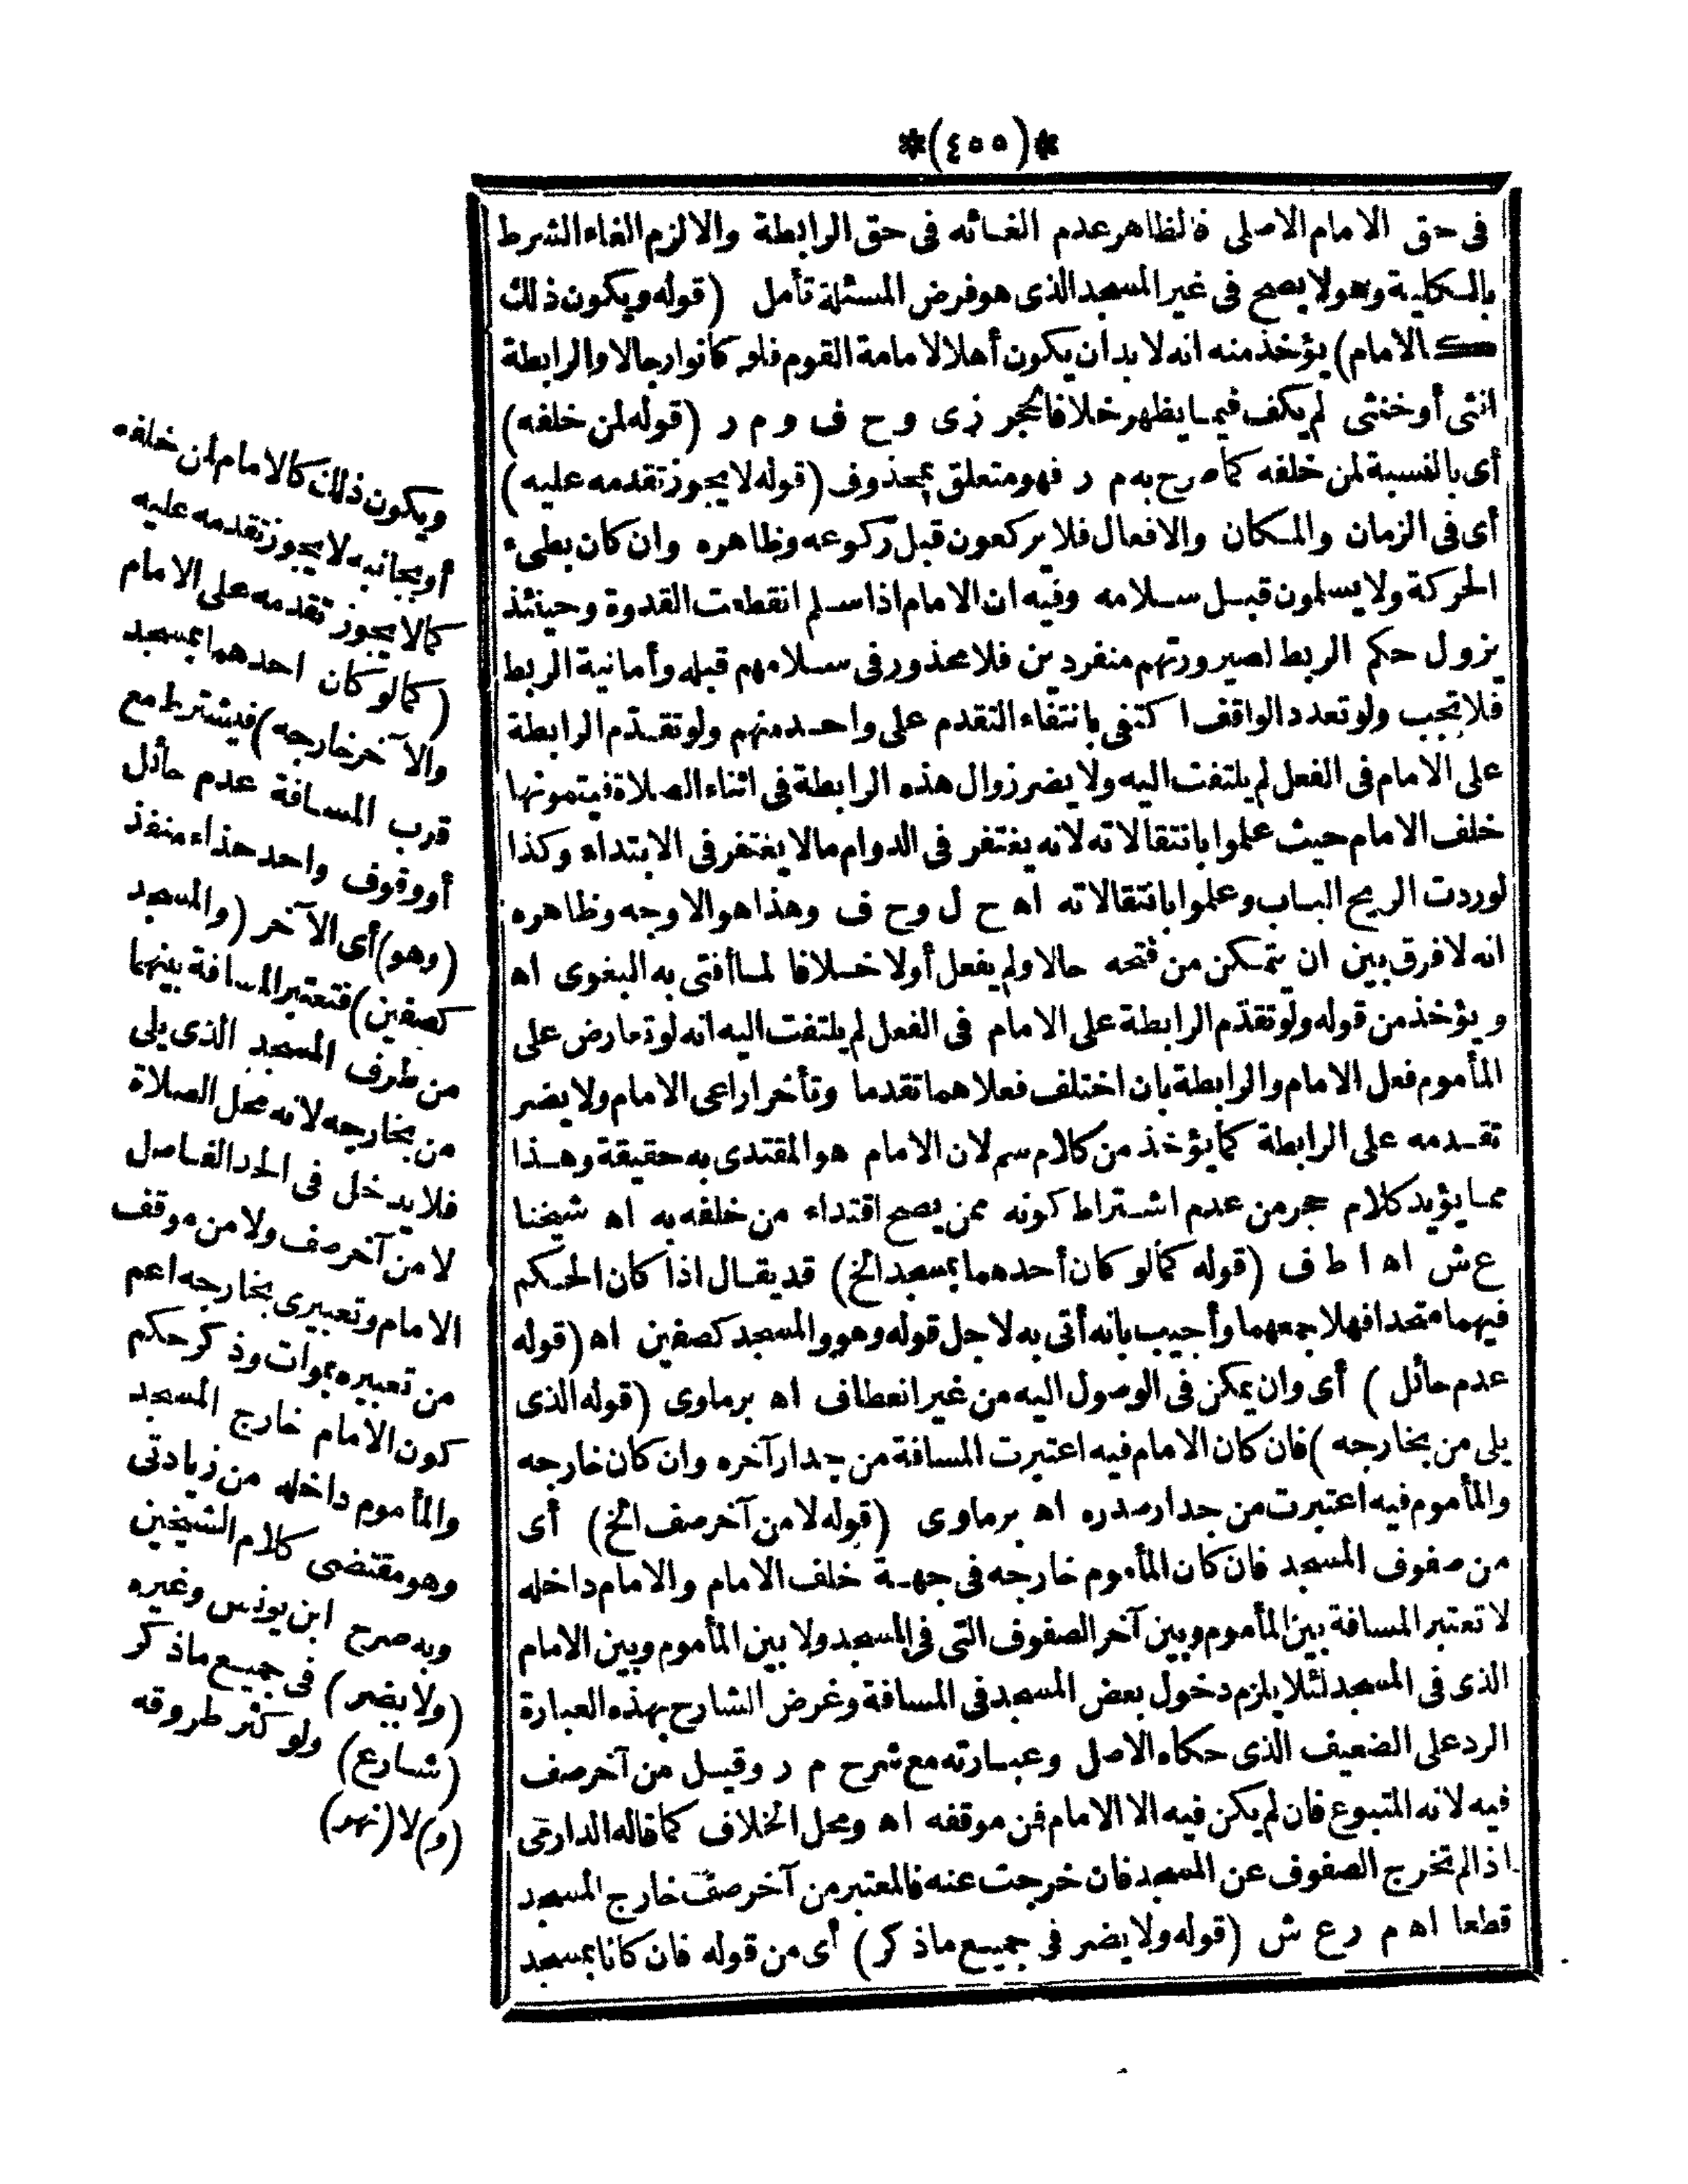 *(٤٥٥)*
فى حق الامام الاصلى فالظاهر عدم الغائه فى حق الرابطة والا لزم الغاء الشرط
بالكلية وهو لا يصح فى غير المسجد الذى هو فرض المسئلة تأمل (قوله ويكون ذلك
كالامام) يؤخذ منه انه لا بد أن يكون أهلا لامامة القوم فلو كانوا رجالا والرابطة
انثى أو خنثى لم يكف فيما يظهر خلافا لحجر زى و ح ف و م ر (قوله لمن خلفه)
أى بالنسبة لمن خلفه كما صرح به م ر فهو متعلق بمحذوف (قوله لا يجوز تقدمه عليه)
أى فى الزمان والمكان والافعال فلا يركعون قبل ركوعه وظاهره وان كان بطىء
الحركة ولا يسلمون قبل سلامه وفيه ان الامام اذا سلم انقطعت القدوة وحينئذ
يزول حكم الربط لصيرورتهم منفردين فلا محذور فى سلامهم قبله وأما نية الربط
فلا تجب ولو تعدد الواقف اكتفى بانتفاء التقدم على واحد منهم ولو تقدّم الرابطة
على الامام فى الفعل لم يلتفت اليه ولا يضر زوال هذه الرابطة فى اثناء الصلاة فيتمونها
خلف الامام حيث علموا بانتقالاته لانه يغتفر فى الدوام ما لا يغتفر فى الابتداء وكذا
لو ردت الريح الباب وعلموا بانتقالاته اه ح ل و ح ف وهذا هو الاوجه وظاهره
انه لا فرق بين ان يتمكن من فتحه حالا ولم يفعل أولا خلافا لما أفتى به البغوى اه
ويؤخذ من قوله ولو تقدّم الرابطة على الامام فى الفعل لم يلتفت اليه انه لو تعارض على
المأموم فعل الامام والرابطة بان اختلف فعلاهما تقدما وتأخرا راعى الامام ولا يضر
تقدمه على الرابطة كما يؤخذ من كلام سم لان الامام هو المقتدى به حقيقة وهذا
مما يؤيد كلام حجر من عدم اشتراط كونه ممن يصح اقتداء من خلفه به اه شيخنا
ع ش اه ا ط ف (قوله كما لو كان أحدهما بمسجد الخ) قد يقال اذا كان الحكم
فيهما متحدا فهلا جمعهما وأجيب بانه أتى به لاجل قوله وهو والمسجد كصفين اه (قوله
عدم حائل) أى وان يمكن فى الوصول اليه من غير انعطاف اه برماوى (قوله الذى
يلى من بخارجه) فان كان الامام فيه اعتبرت المسافة من جدار آخره وان كان خارجه
والمأموم فيه اعتبرت من جدار صدره اه برماوى (قوله لا من آخر صف الخ) أى
من صفوف المسجد فان كان المأموم خارجه فى جهة خلف الامام والامام داخله
لا تعتبر المسافة بين المأموم وبين آخر الصفوف التى فى المسجد ولا بين المأموم وبين الامام
الذى فى المسجد لئلا يلزم دخول بعض المسجد فى المسافة وغرض الشارح بهذه العبارة
الرد على الضعيف الذى حكاه الاصل وعبارته مع شرح م ر وقيل من آخر صف
فيه لانه المتبوع فان لم يكن فيه الا الامام فمن موقفه اه ومحل الخلاف كما قاله الدارمى
اذا لم تخرج الصفوف عن المسجد فان خرجت عنه فالمعتبر من آخر صف خارج المسجد
قطعا اه م ر ع ش (قوله ولا يضر فى جميع ما ذكر) أى من قوله فان كانا بمسجد
ويكون ذلك كالامام لمن خلفه
أو بجانبه لا يجوز تقدمه عليه
كما لا يجوز تقدمه على الامام
(كما لو كان احدهما بمسجد
والآخر خارجه) فيشترط مع
قرب المسافة عدم حائل
أو وقوف واحد حذاء منفذ
(وهو) أى الآخر (والمسجد
كصفين) فتعتبر المسافة بينهما
من طرف المسجد الذى يلى
من بخارجه لانه محل الصلاة
فلا يدخل فى الحد الفاصل
لا من آخر صف ولا من موقف
الامام وتعبيرى بخارجه اعم
من تعبيره بموات وذكر حكم
كون الامام خارج المسجد
والمأموم داخله من زيادتى
وهو مقتضى كلام الشيخين
وبه صرح ابن يونس وغيره
(ولا يضر) فى جميع ما ذكر
(شارع) ولو كثر طروقه
(و) لا (نهر)